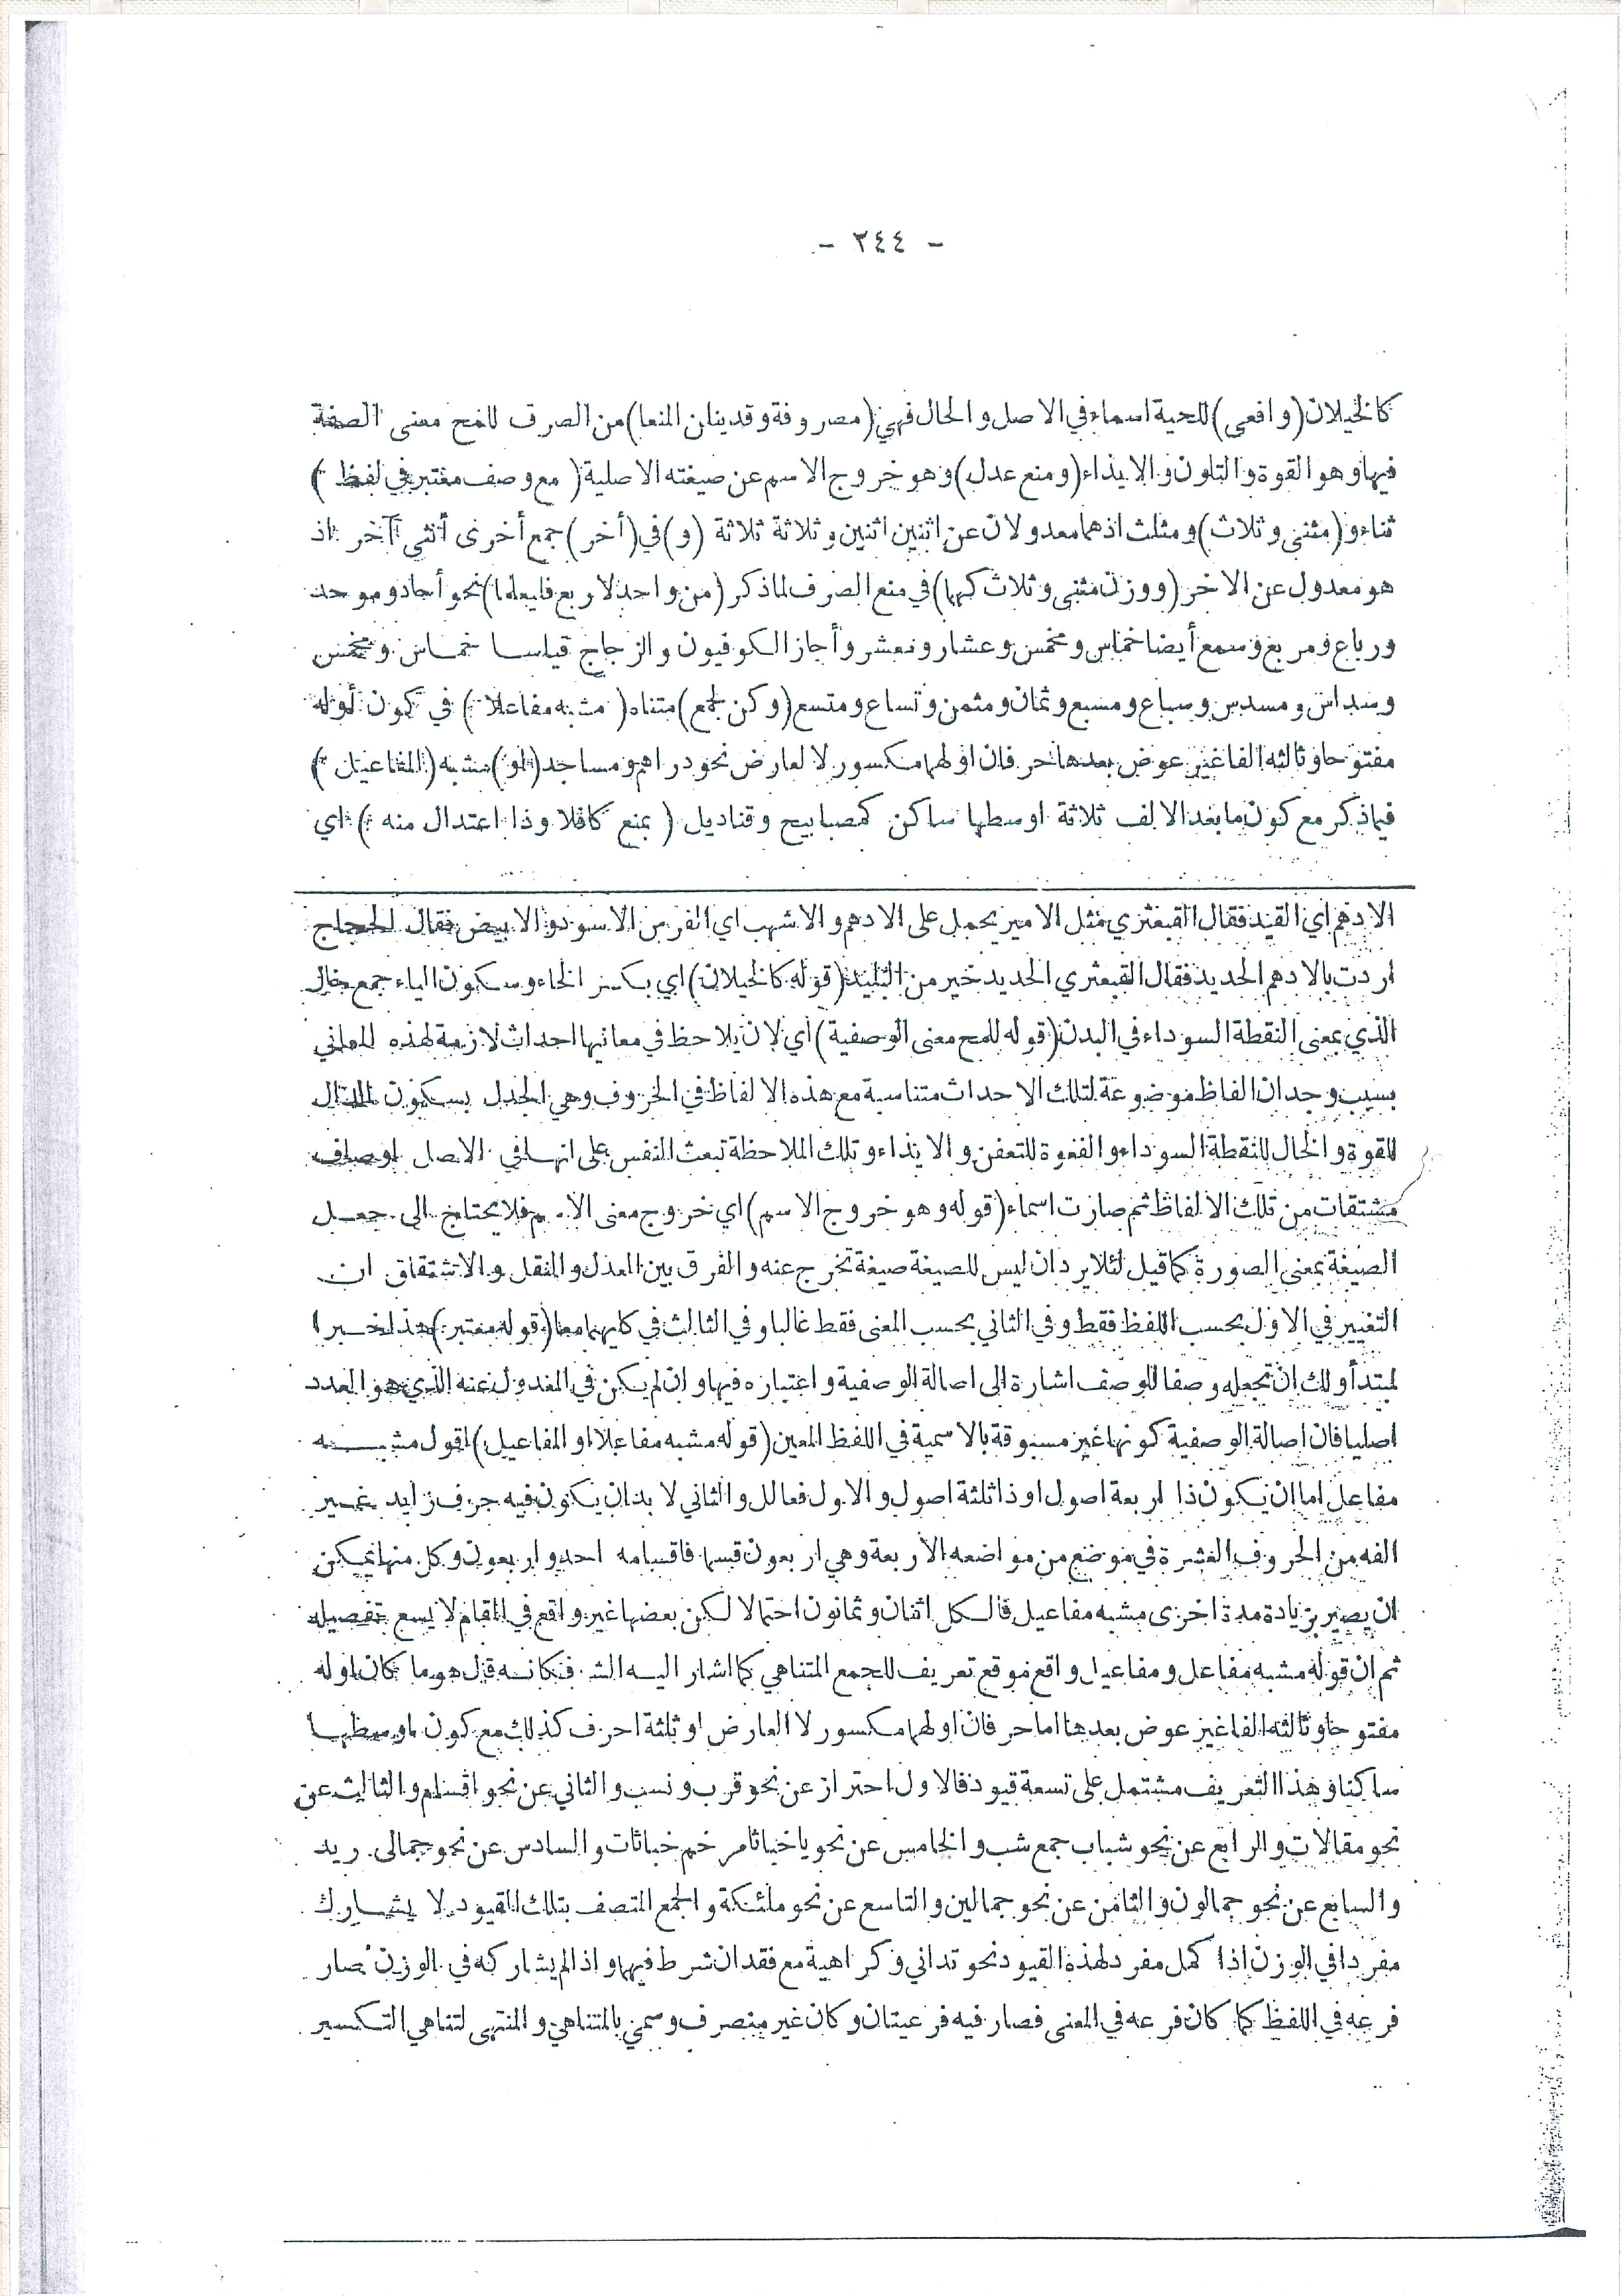 - ٢٤٤ -
كالخيلان (وافعى) للحية اسماء في الاصل والحال فهي (مصروفة وقد ينلن المنعا) من الصرف للمح معنى الصفة
فيها وهو القوة والتلون والايذاء (ومنع عدل) وهو خروج الاسم عن صيغته الاصلية (مع وصف معتبر في لفظ)
ثناء و (مثنى وثلاث) ومثلث اذهما معدولان عن اثنين اثنين وثلاثة ثلاثة (و) في (أخر) جمع أخرى أنثى آخر اذ
هو معدول عن الاخر (ووزن مثنى وثلاث كهما) في منع الصرف لما ذكر (من واحد لاربع فليعلما) نحو أحاد وموحد
ورباع ومربع وسمع أيضا خماس ومخمس وعشار ومعشر وأجاز الكوفيون والزجاج قياسا خماس ومخمس
وسداس ومسدس وسباع ومسبع وثمان ومثمن وتساع ومتسع (وكن لجمع) متناه (مشبه مفاعلا) في كون أوله
مفتوحا وثالثه الفا غير عوض بعدها حرفان اولهما مكسور لا لعارض نحو دراهم ومساجد (او) مشبه (المفاعيل)
فيما ذكر مع كون ما بعد الالف ثلاثة اوسطها ساكن كمصابيح وقناديل (بمنع كافلا وذا اعتدال منه) اي
الادهم اي القيد فقال القبعثري مثل الامير يحمل على الادهم والاشهب اي الفرس الاسود والابيض فقال الحجاج
اردت بالادهم الحديد فقال القبعثري الحديد خير من البليد (قوله كالخيلان) اي بكسر الخاء وسكون الياء جمع خال
الذي بمعنى النقطة السوداء في البدن (قوله للمح معنى الوصفية) اي لان يلاحظ في معانيها احداث لازمة لهذه المعاني
بسبب وجدان الفاظ موضوعة لتلك الاحداث متناسبة مع هذه الالفاظ في الحروف وهي الجدل بسكون الدال
للقوة والخال للنقطة السوداء والفعوة للتعفن والايذاء وتلك الملاحظة تبعث النفس على انها في الاصل اوصاف
مشتقات من تلك الالفاظ ثم صارت اسماء (قوله وهو خروج الاسم) اي خروج معنى الاسم فلا يحتاج الى جعل
الصيغة بمعنى الصورة كما قيل لئلا يرد ان ليس للصيغة صيغة تخرج عنه والفرق بين العدل والنقل والاشتقاق ان
التغيير في الاول بحسب اللفظ فقط وفي الثاني بحسب المعنى فقط غالبا وفي الثالث في كليهما معا (قوله معتبر) هذا خبر ا
لمبتدأ ولك ان تجعله وصفا للوصف اشارة الى اصالة الوصفية واعتباره فيها وان لم يكن في المعدول عنه الذي هو العدد
اصليا فان اصالة الوصفية كونها غير مسبوقة بالاسمية في اللفظ المعين (قوله مشبه مفاعلا او المفاعيل) اقول مشبه
مفاعل اما ان يكون ذا اربعة اصول او ذا ثلثة اصول والاول فعالل والثاني لا بد ان يكون فيه حرف زايد غير
الفه من الحروف العشرة في موضع من مواضعه الاربعة وهي اربعون قسما فاقسامه احد واربعون وكل منها يمكن
ان يصير بزيادة مدة اخرى مشبه مفاعيل فالكل اثنان وثمانون احتمالا لكن بعضها غير واقع في المقام لا يسع تفصيله
ثم ان قوله مشبه مفاعل ومفاعيل واقع موقع تعريف للجمع المتناهي كما اشار اليه الش فكانه قال هو ما كان اوله
مفتوحا وثالثه الفا غير عوض بعدها اما حرفان اولهما مكسور لا لعارض او ثلثة احرف كذلك مع كون اوسطها
ساكنا وهذا التعريف مشتمل على تسعة قيود فالاول احتراز عن نحو قرب ونسب والثاني عن نحو اقسام والثالث عن
نحو مقالات والرابع عن نحو شباب جمع شب والخامس عن نحو يا خباثا مرخم خباثات والسادس عن نحو جمالى ريد
والسابع عن نحو جمالون والثامن عن نحو جمالين والتاسع عن نحو ملئكة والجمع المتصف بتلك القيود لا يشارك
مفردا في الوزن اذا كمل مفرد لهذه القيود نحو تداني وكراهية مع فقدان شرط فيهما واذا لم يشاركه في الوزن صار
فرعه في اللفظ كما كان فرعه في المعنى فصار فيه فرعيتان وكان غير منصرف وسمي بالمتناهي والمنتهى لتناهي التكسير